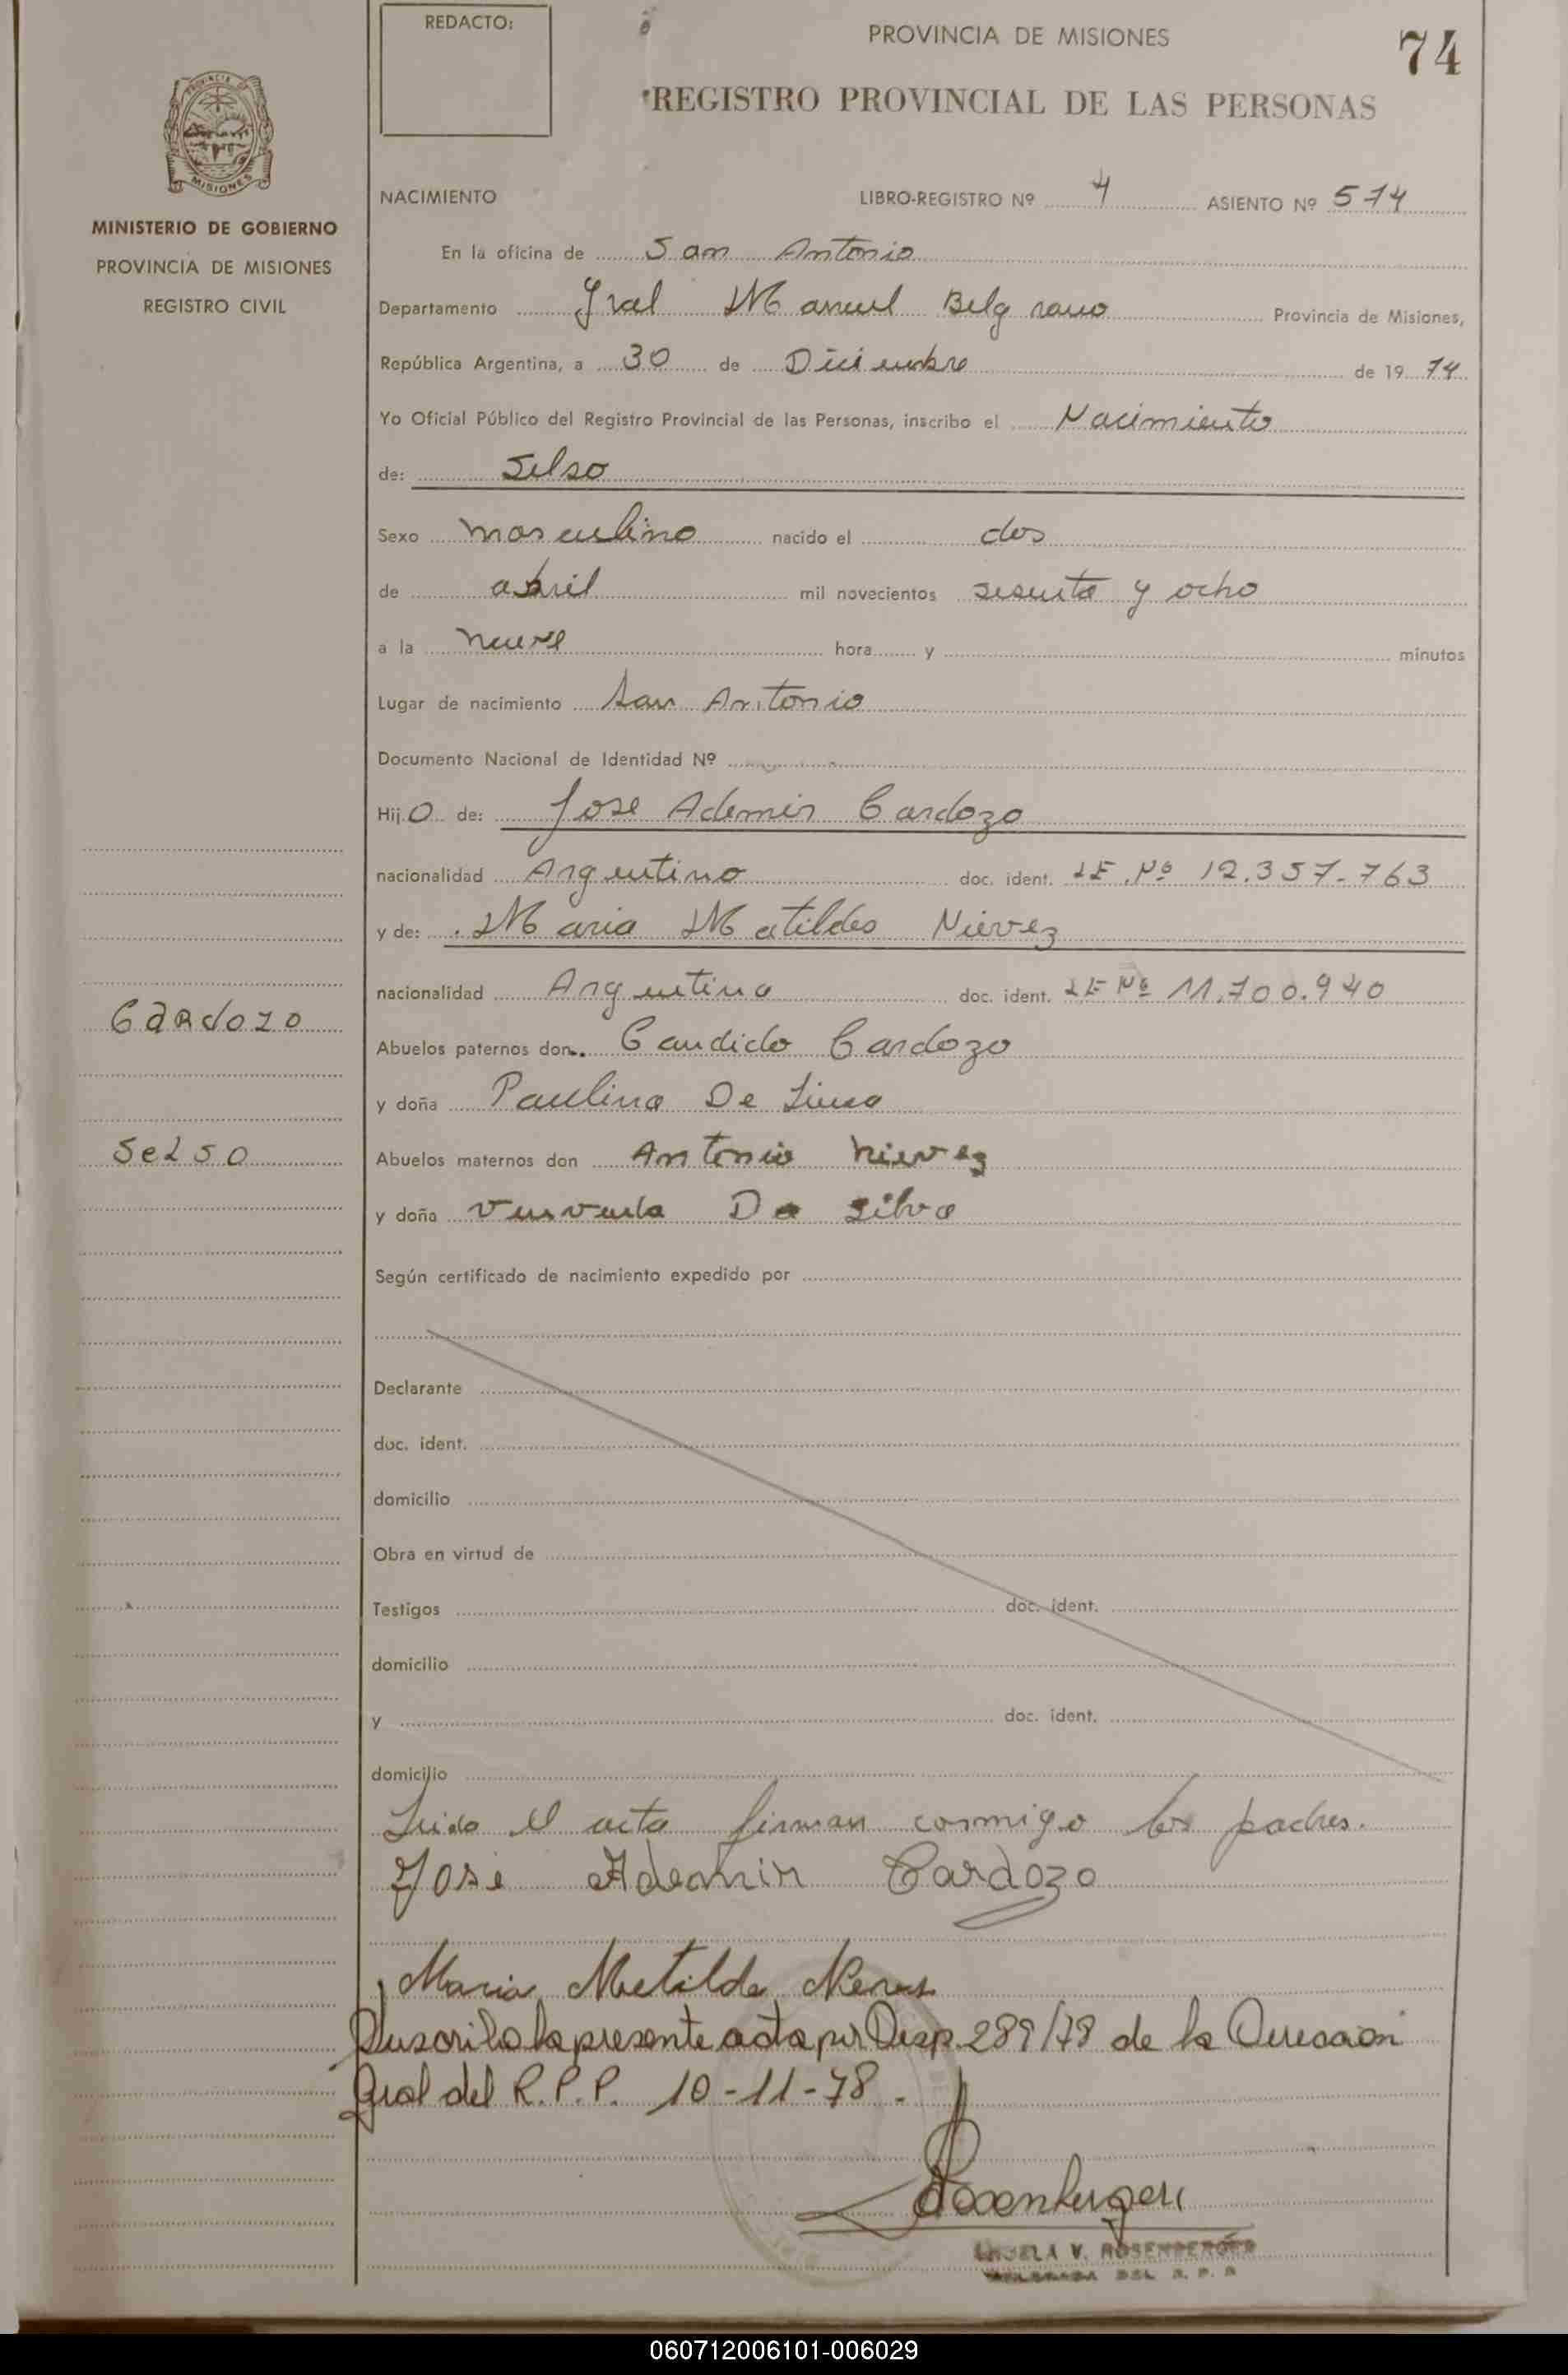 REDACTO:
PROVINCIA DE MISIONES
74
REGISTRO PROVINCIAL DE LAS PERSONAS
PROVINCIA DE
MISIONES
MINISTERIO DE GOBIERNO
PROVINCIA DE MISIONES
REGISTRO CIVIL
NACIMIENTO LIBRO-REGISTRO Nº 4 ASIENTO Nº 574
En la oficina de San Antonio
Departamento Gral Manuel Belgrano Provincia de Misiones,
República Argentina, a 30 de Diciembre de 1974
Yo Oficial Público del Registro Provincial de las Personas, inscribo el Nacimiento
de: Selso
Sexo masculino nacido el dos
de abril mil novecientos sesenta y ocho
a la nueve hora y minutos
Lugar de nacimiento San Antonio
Documento Nacional de Identidad Nº
Hijo de: Jose Ademir Cardozo
nacionalidad Argentino doc. ident. LE Nº 12.357.763
y de: Maria Matildes Nievez
nacionalidad Argentina doc. ident. Nº 11.700.940
Cardozo
Abuelos paternos don Candido Cardozo
y doña Paulina De Lima
Selso
Abuelos maternos don Antonio Nievez
y doña Da Silva
Según certificado de nacimiento expedido por
Declarante
doc. ident.
domicilio
Obra en virtud de
Testigos doc. ident.
domicilio
y doc. ident.
domicilio
Leida el acta firman conmigo los padres.
Jose Ademir Cardozo
Maria Matilde
la presente acta por Disp. 289/78 de la Direccion
Gral del R.P.P. 10-11-78.
Rosenberger
V. ROSENBERGER
DEL R. P. P.
060712006101-006029